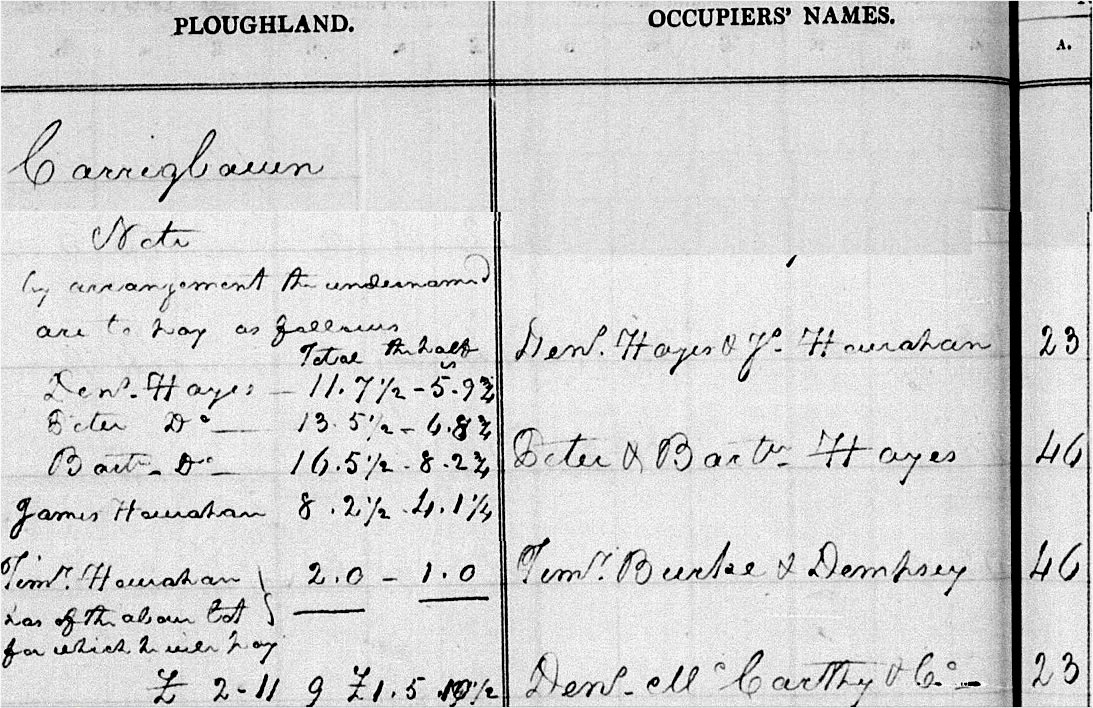 PLOUGHLAND.
OCCUPIERS' NAMES.
A.
Carrigbaun
Note
by arrangement the undernamed
are to pay as follows
Total the half
Denˢ. Hayes — 11. 7½ - 5. 9¾
Peter Dº — 13. 5½ - 6. 8¾
Bartʷ. Dº — 16. 5½ - 8. 2¾
James Hourahan 8. 2½ - 4. 1¼
Timʸ. Hourahan 2. 0 - 1. 0
has of the above lot
for which he will pay
£ 2-11 9 £1. 5. 10½
Denˢ. Hayes & Jˢ. Hourahan 23
Peter & Bartʷ. Hayes 46
Timʸ. Burke & Dempsey 46
Denˢ. McCarthy & Cº 23